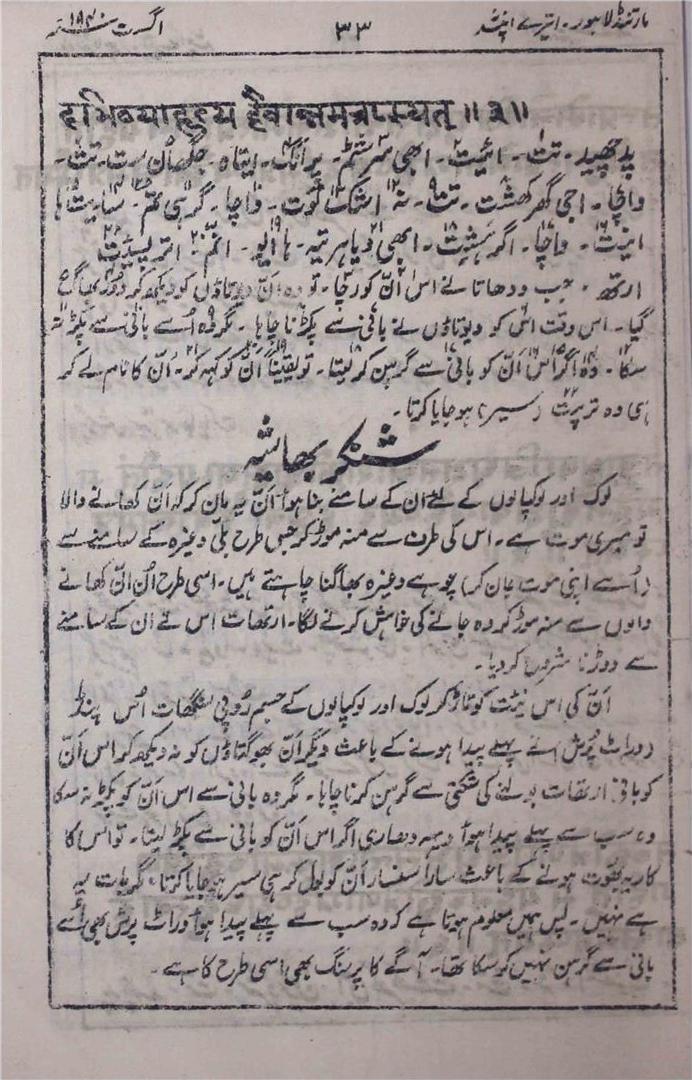 مارتنڈ لاہور - ایترے اپنشد ۳۳ اگست سنہ ۱۹۴۰
हभिव्याहृत्य हैवान्नमत्रप्स्यत् ॥ ३ ॥
پدچھید - تت - اینت - ابھی سرشٹم - پرانگ - - تت -
واچا - اجی گھرکھشت - تت - نہ اشک نوت - واچا - گرہی تم -
واچا - اگرہیشیت - ابھی ویاہرتیہ - ہا ایو - انم - اترپسیت
ارتھ - جب ودھاتا نے اس ان کو رچا - تو وہ ان دیوتاؤں کو دیکھ کر دوڑ بھاگ
گیا - اس وقت اس کو دیوتاؤں نے بانی سے پکڑنا چاہا - مگر وہ اُسے بانی سے پکڑ نہ
سکا - وہ اگر اس اَنّ کو بانی سے گرہن کر لیتا - تو یقیناً اَنّ کو کہہ کر - اُنّ کا نام لے کر
ہی وہ ترپت (سیر) ہو جایا کرتا -
شنکر بھاشیہ
لوک اور لوکپالوں کے لئے ان کے سامنے بنا ہوا اَنّ یہ مان کر کہ اَنّ کھانے والا
تو میری موت ہے - اس کی طرف سے منہ موڑ کر جس طرح بلّی وغیرہ کے سامنے سے
(اُسے اپنی موت جان کر) چوہے وغیرہ بھاگنا چاہتے ہیں - اسی طرح اُن انّ کھانے
والوں سے منہ موڑ کر وہ جانے کی خواہش کرنے لگا - ارتھات اس نے ان کے سامنے
سے دوڑنا شروع کر دیا -
اَنّ کی اس نیّت کو تاڑ کر لوک اور لوکپالوں کے جسم رُوپی سنگھات اُس پنڈ
(وراٹ پُرش) نے پہلے پیدا ہونے کے باعث دیگر اَنّ بھوگتاؤں کو نہ دیکھ کر اس اَنّ
کو بانی ارتھات بولنے کی شکتی سے گرہن کرنا چاہا - مگر وہ بانی سے اس اَنّ کو پکڑ نہ سکا
وہ سب سے پہلے پیدا ہوا دیہہ دھاری اگر اس اَنّ کو بانی سے پکڑ لیتا - تو اس کا
کاریہ بھُوت ہونے کے باعث سارا سنسار اَنّ کو بول کر ہی سیر ہو جایا کرتا - مگر بات یہ
ہے نہیں - پس ہمیں معلوم ہوتا ہے کہ وہ سب سے پہلے پیدا ہوا وراٹ پرش بھی اُسے
بانی سے گرہن نہیں کر سکا تھا - آگے کا پرسنگ بھی اسی طرح کا ہے -